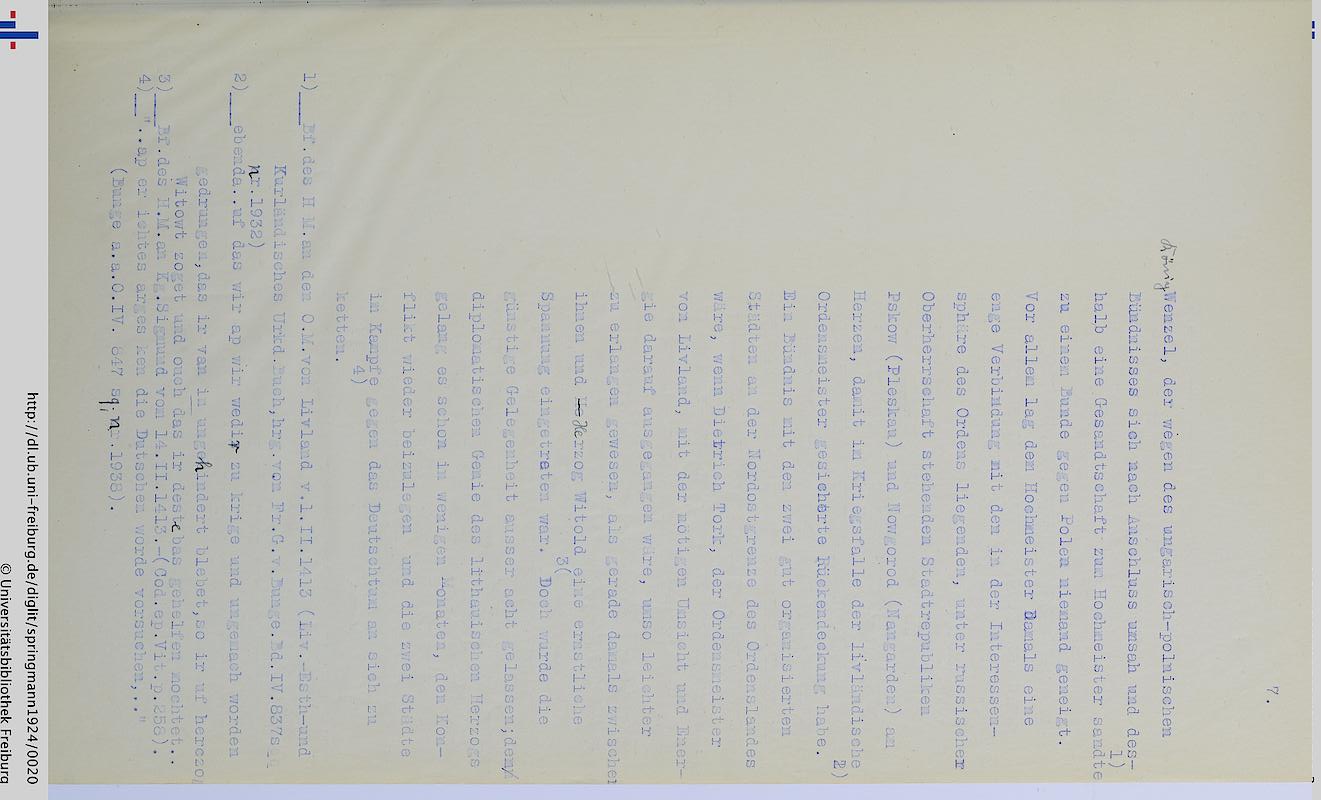 7.
König Wenzel, der wegen des ungarisch-polnischen
Bündnisses sich nach Anschluss umsah und des-
halb eine Gesandtschaft zum Hochmeister sandte 1)
zu einem Bunde gegen Polen niemand geneigt.
Vor allem lag dem Hochmeister Damals eine
enge Verbindung mit den in der Interessen-
sphäre des Ordens liegenden, unter russischer
Oberherrschaft stehenden Stadtrepubliken
Pskow (Pleskau) und Nowgorod (Naugarden) am
Herzen, damit im Kriegsfalle der livländische
Ordensmeister gesicherte Rückendeckung habe. 2)
Ein Bündnis mit den zwei gut organisierten
Städten an der Nordostgrenze des Ordenslandes
wäre, wenn Dietrich Tork, der Ordensmeister
von Livland, mit der nötigen Umsicht und Ener-
gie darauf ausgegangen wäre, umso leichter
zu erlangen gewesen, als gerade damals zwischen
ihnen und Herzog Witold eine ernstliche
Spannung eingetreten war. 3( Doch wurde die
günstige Gelegenheit ausser acht gelassen;denn
diplomatischen Genie des lithauischen Herzogs
gelang es schon in wenigen Monaten, den Kon-
flikt wieder beizulegen und die zwei Städte
im Kampfe 4) gegen das Deutschtum an sich zu
ketten.
1) Bf.des H M.an den O.M.von Livland v.1.II.1413 (Liv.-Esth-und
Kurländisches Urkd.Buch,hrg.von Fr.G.v.Bunge.Bd.IV.837s.
nr.1932)
2) ebenda..uf das wir ap wir wedir zu krige und ungemach worden
gedrungen,das ir van in ungehindert blebet,so ir uf herczog
Witowt zoget und ouch das ir deste bas gehelfen mochtet..
3) Bf.des H.M.an Kg.Sigmund von 14.II.1413.-(Cod.ep.Vit.p.258).
4) "..ap er ichtes arges ken die Dutschen worde vorsuchen,.."
(Bunge a.a.O.IV. 847 sq.nr 1938).
http://dl.ub.uni-freiburg.de/diglit/springmann1924/0020
© Universitätsbibliothek Freiburg